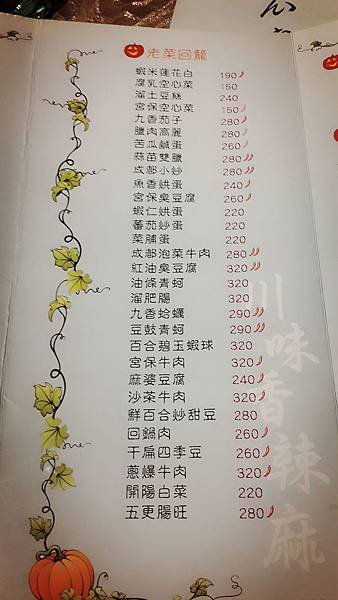 老菜回籠
蝦米蓮花白 190
腐乳空心菜 150
溜土豆絲 240
宮保空心菜 150
九香茄子 280
臘肉高麗 280
苦瓜鹹蛋 260
蒜苗雙臘 280
成都小炒 280
魚香烘蛋 240
宮保臭豆腐 260
蝦仁烘蛋 220
蕃茄炒蛋 220
菜脯蛋 220
成都泡菜牛肉 280
紅油臭豆腐 320
油條青蚵 320
溜肥腸 320
九香蛤蠣 290
豆鼓青蚵 290
百合碧玉蝦球 320
宮保牛肉 320
麻婆豆腐 240
沙茶牛肉 320
鮮百合炒甜豆 280
回鍋肉 260
干扁四季豆 260
蔥爆牛肉 320
開陽白菜 220
五更腸旺 280
川味香辣麻